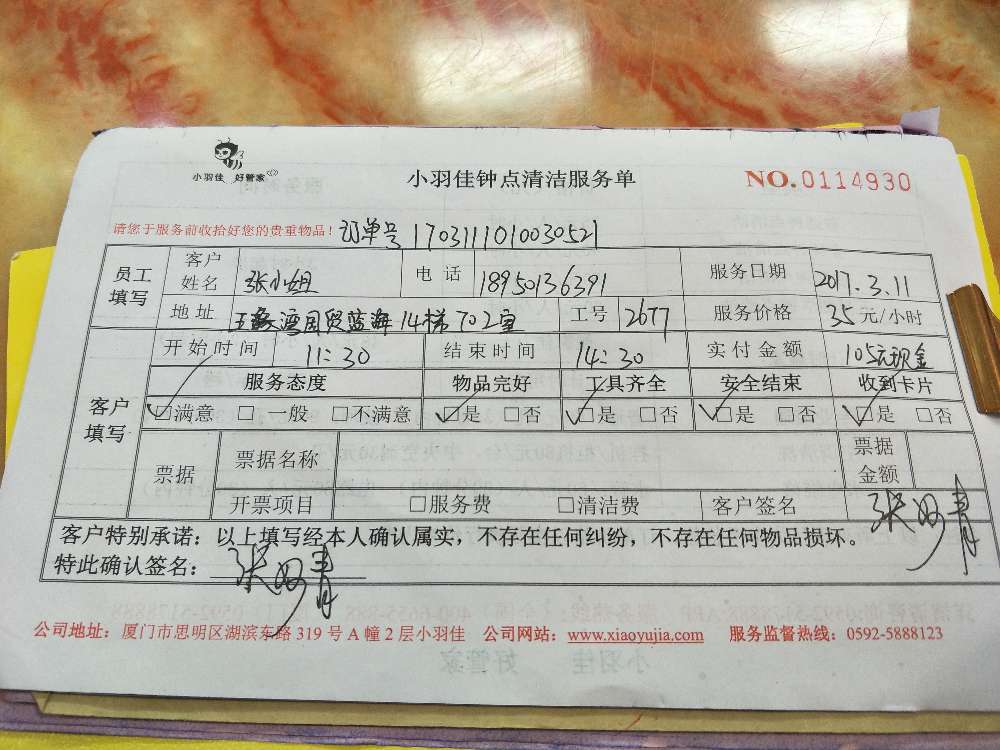 小羽佳 好管家
小羽佳钟点清洁服务单
NO.0114930
请您于服务前收拾好您的贵重物品！ 订单号 1703111010030521
员工填写 客户姓名 张小姐 电话 18950136391 服务日期 2017.3.11
地址 湾国贸蓝海14梯702室 工号 2677 服务价格 35元/小时
客户填写 开始时间 11:30 结束时间 14:30 实付金额 105元现金
服务态度 物品完好 工具齐全 安全结束 收到卡片
☑满意 □一般 □不满意 ☑是 □否 ☑是 □否 ☑是 □否 ☑是 □否
票据 票据名称 票据金额
开票项目 □服务费 □清洁费 客户签名 张
客户特别承诺：以上填写经本人确认属实，不存在任何纠纷，不存在任何物品损坏。
特此确认签名： 张
公司地址：厦门市思明区湖滨东路 319 号 A 幢 2 层小羽佳 公司网站：www.xiaoyujia.com 服务监督热线：0592-5888123